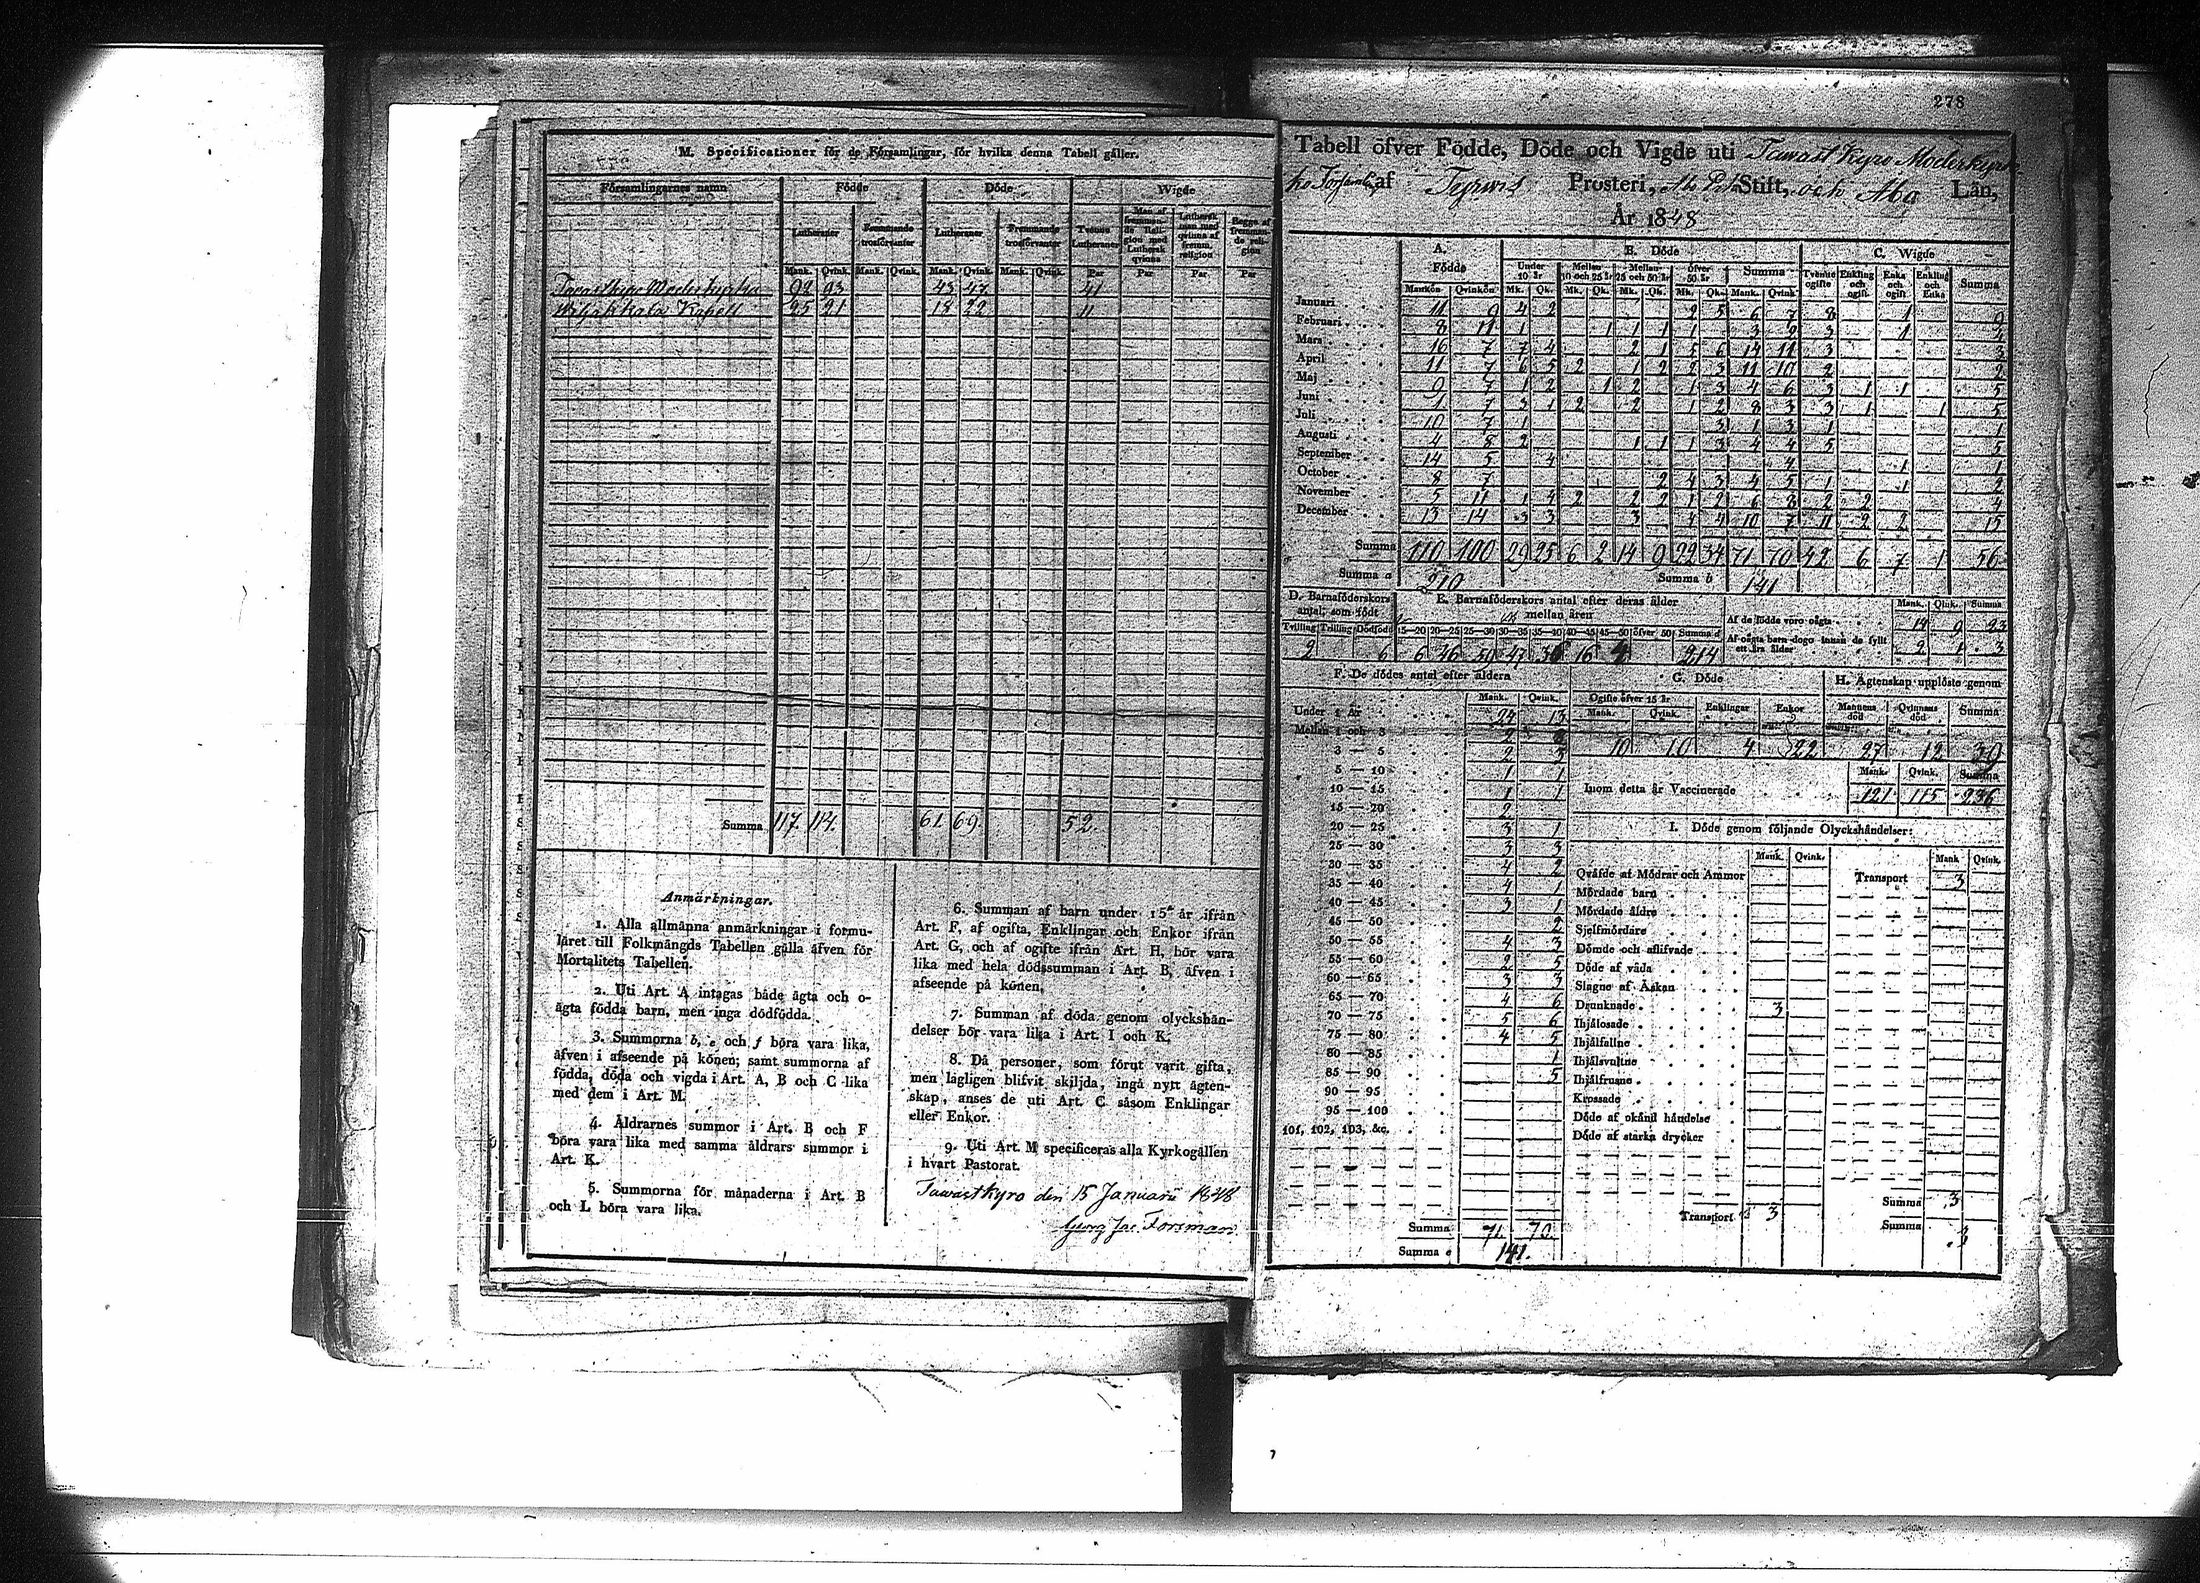 M. Specificationer för de Församlingar, för hvilka denna Tabell gäller.
Församlingarnes namn Födde Döde Wigde
Lutheraner Fremmande trosförvanter Lutheraner Fremmande trosförvanter Tvenne Lutheraner Man af fremmande Religion med Luthersk qvinna Luthersk man med qvinna af fremm. religion Begge af fremmande religion
Mank. Qvink. Mank. Qvink. Mank. Qvink. Mank. Qvink. Par Par Par Par
Tavastkyro Moderkyrka 92 93 43 47 41
Wiljakkala Kapell 25 21 18 22 11
Summa 117. 114. 61. 69. 52.
Anmärkningar.
1. Alla allmänna anmärkningar i formu-
läret till Folkmängds Tabellen gälla äfven för
Mortalitets Tabellen.
2. Uti Art. A intagas både ägta och o-
ägta födda barn, men inga dödfödda.
3. Summorna b, e och f böra vara lika,
äfven i afseende på könen; samt summorna af
födda, döda och vigda i Art. A, B och C lika
med dem i Art. M.
4. Åldrarnes summor i Art. B och F
böra vara lika med samma åldrars summor i
Art. K.
5. Summorna för månaderna i Art. B
och L böra vara lika.
6. Summan af barn under 15 år ifrån
Art. F, af ogifta, Enklingar och Enkor ifrån
Art. G, och af ogifte ifrån Art. H, bör vara
lika med hela dödssumman i Art. B, äfven i
afseende på könen.
7. Summan af döda genom olyckshän-
delser bör vara lika i Art. I och K.
8. Då personer, som förut varit gifta,
men lagligen blifvit skiljda, ingå nytt ägten-
skap, anses de uti Art. C såsom Enklingar
eller Enkor.
9. Uti Art. M specificeras alla Kyrkogällen
i hvart Pastorat.
Tawastkyro den 15 Januarii 1848
Georg Jac. Forsman.
278
Tabell öfver Födde, Döde och Vigde uti Tawast Kyro Moderkyro
af Tyrvis Prosteri, Stift, och Åbo Län,
År 1848
A. Födde B. Döde C. Wigde
Under 10 år Mellan 10 och 25 år Mellan 25 och 50 år öfver 50 år Summa Tvenne ogifte Enkling och ogift Enka och ogift Enkling och Enka Summa
Mankön Qvinkön Mk. Qk. Mk. Qk. Mk. Qk. Mk. Qk. Mank. Qvink.
Januari 11 9 4 2 2 5 6 7 8 1 9
Februari 8 11 1 1 1 1 1 3 2 3 1 4
Mars 16 7 7 4 2 1 5 6 14 11 3 3
April 11 7 6 5 2 1 2 2 3 11 10 2 2
Maj 9 7 1 2 1 2 1 3 4 6 3 1 1 5
Juni 1 7 3 1 2 2 1 2 8 3 3 1 1 5
Juli 10 7 1 3 1 3 1 1
Augusti 4 8 2 1 1 1 3 4 4 5 5
September 14 5 4 4 1 1
October 8 7 2 4 3 4 5 1 1 2
November 5 11 1 4 2 2 2 1 2 6 8 2 2 4
December 13 14 3 3 3 4 4 10 7 11 2 2 15
Summa 110 100 29 25 6 2 14 9 22 34 71 70 42 6 7 1 56
Summa a 210 Summa b 141
D. Barnaföderskors antal, som födt
Tvilling Trilling Dödfödt
2 6
E. Barnaföderskors antal efter deras ålder
mellan åren
15—20 20—25 25—30 30—35 35—40 40—45 45—50 öfver 50 Summa d
6 46 59 47 36 16 4 214
Mank. Qink. Summa
Af de födde voro oägta 14 9 23
Af oägta barn dogo innan de fyllt ett års ålder 2 1 3
F. De dödes antal efter åldern
Mank. Qvink.
Under 1 år 24 13
Mellan 1 och 3 2 8
3 — 5 2 3
5 — 10 1 1
10 — 15 1 1
15 — 20 2
20 — 25 3 1
25 — 30 3 3
30 — 35 4 2
35 — 40 4 1
40 — 45 3 1
45 — 50 2
50 — 55 4 3
55 — 60 2 5
60 — 65 3 3
65 — 70 4 6
70 — 75 5 6
75 — 80 4 5
80 — 85 1
85 — 90 5
90 — 95
95 — 100
101, 102, 103, &c.
Summa 71 70.
Summa e 141.
G. Döde
Ogifte öfver 15 år Enklingar Enkor
Mank. Qvink.
10 10 4 22
H. Ägtenskap upplöste genom
Mannens död Qvinnans död Summa
27 12 39
Mank. Qvink. Summa
Inom detta år Vaccinerade 121 115 236
I. Döde genom följande Olyckshändelser:
Mank. Qvink. Mank Qvink.
Qväfde af Mödrar och Ammor Transport 3
Mördade barn
Mördade äldre
Sjelfmördare
Dömde och aflifvade
Döde af våda
Slagne af Åskan
Drunknade 3
Ihjälosade
Ihjälfallne
Ihjälsvultne
Ihjälfrusne
Krossade
Döde af okänd händelse
Döde af starka drycker
Transport 3
Summa 3
Summa 3